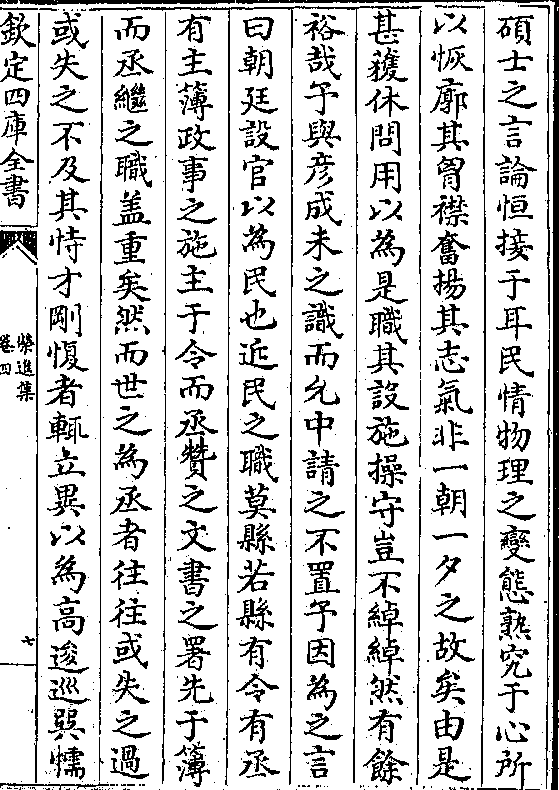 碩士之言論恒接于耳民情物理之變態熟究于心所
以恢廓其胷襟奮揚其志氣非一朝一夕之故矣由是
甚獲休問用以為是職其設施操守豈不綽綽然有餘
裕哉予與彦成未之識而允中請之不置予因為之言
曰朝廷設官以為民也近民之職莫縣若縣有令有丞
有主薄政事之施主于令而丞贊之文書之署先于簿
而丞繼之職盖重矣然而世之為丞者往往或失之過
或失之不及其恃才剛愎者輒立異以為高逡巡巽懦
欽定四庫全書
榮進集
卷四
七